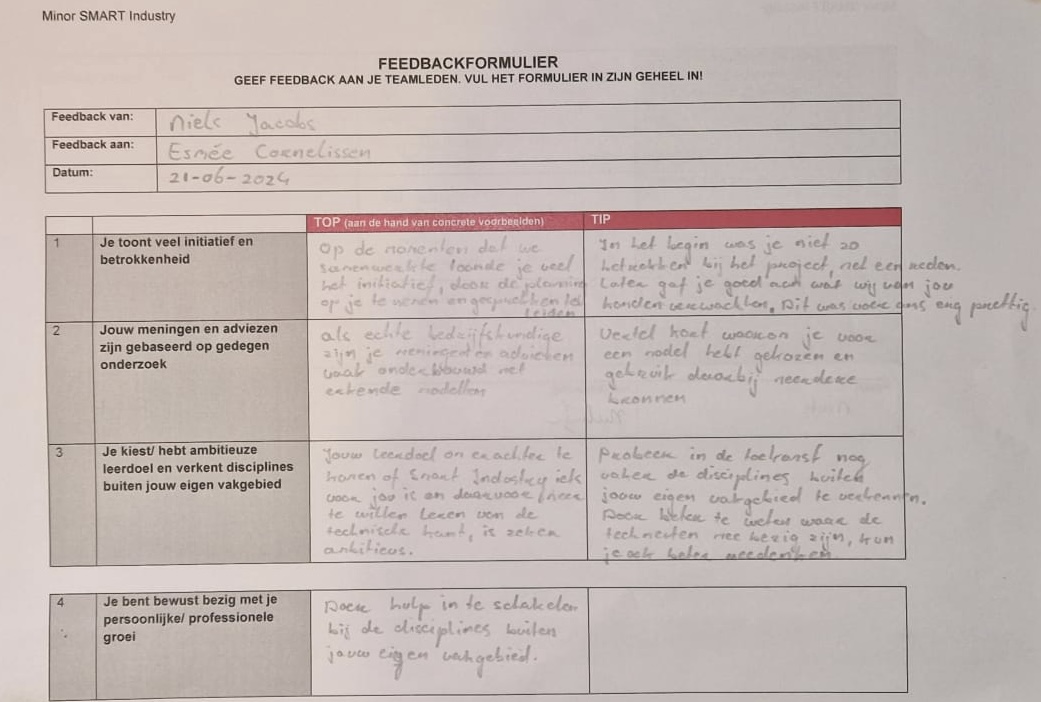 Minor SMART Industry
FEEDBACKFORMULIER
GEEF FEEDBACK AAN JE TEAMLEDEN. VUL HET FORMULIER IN ZIJN GEHEEL IN!
Feedback van: Niels Jacobs
Feedback aan: Esmée Cornelissen
Datum: 21-06-2024
TOP (aan de hand van concrete voorbeelden)
TIP
1
Je toont veel initiatief en
betrokkenheid
Op de momenten dat we
samenwerkte toonde je veel
het initiatief, door de planning
op je te nemen en gesprekken te
leiden
In het begin was je niet zo
betrokken bij het project, met een reden.
Later gaf je goed aan wat wij van jou
konden verwachten. Dit was voor ons erg prettig.
2
Jouw meningen en adviezen
zijn gebaseerd op gedegen
onderzoek
als echte bedrijfskundige
zijn je meningen en adviezen
vaak onderbouwd met
erkende modellen
Vertel kort waarom je voor
een model hebt gekozen en
gebruik daarbij meerdere
bronnen
3
Je kiest/ hebt ambitieuze
leerdoel en verkent disciplines
buiten jouw eigen vakgebied
Jouw leerdoel om erachter te
komen of Smart Industry iets
voor jou is en daarvoor meer
te willen leren van de
technische kant, is zeker
ambitieus.
Probeer in de toekomst nog
vaker de disciplines buiten
jouw eigen vakgebied te verkennen.
Door beter te weten waar de
technenten mee bezig zijn, kun
je ook beter meedenken
4
Je bent bewust bezig met je
persoonlijke/ professionele
groei
Door hulp in te schakelen
bij de disciplines buiten
jouw eigen vakgebied.